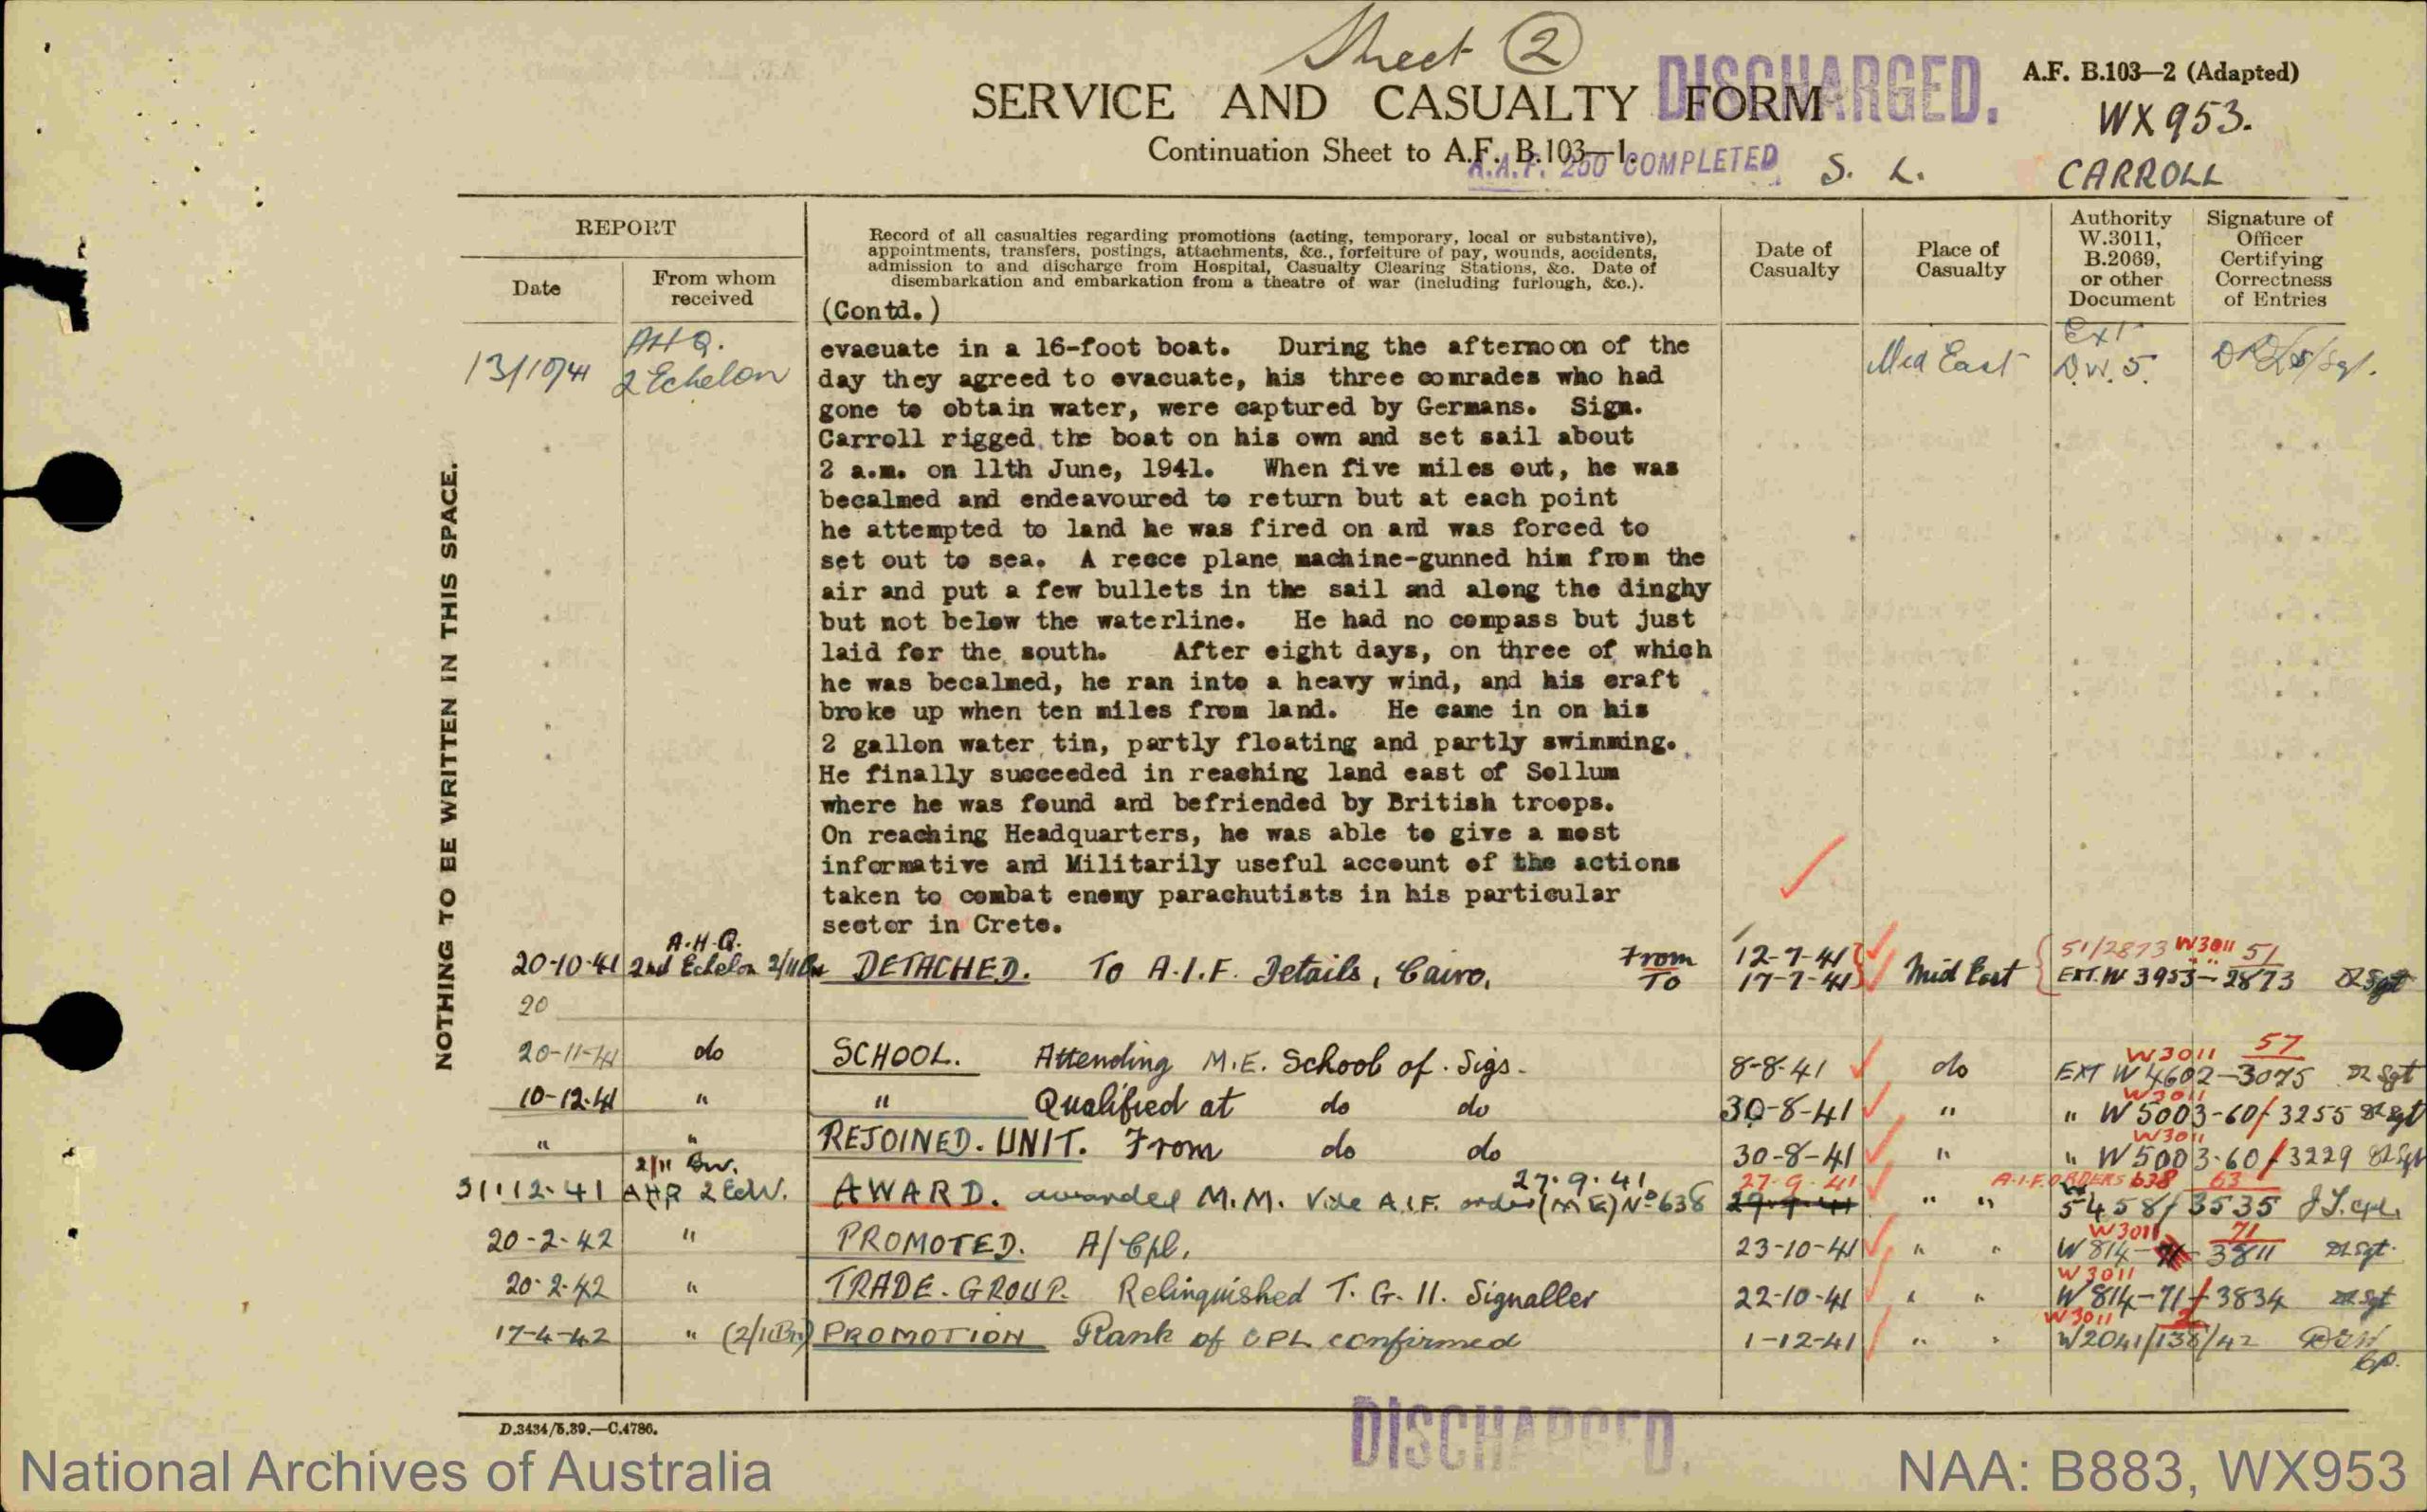 Sheet 2
SERVICE AND CASUALTY FORM
DISCHARGED.
A.F. B.103—2 (Adapted)
WX953.
Continuation Sheet to A.F. B.103—1.
A.A.F. 200 COMPLETED
S. L. CARROLL
REPORT
Date
From whom received
Record of all casualties regarding promotions (acting, temporary, local or substantive),
appointments, transfers, postings, attachments, &c., forfeiture of pay, wounds, accidents,
admission to and discharge from Hospital, Casualty Clearing Stations, &c. Date of
disembarkation and embarkation from a theatre of war (including furlough, &c.).
Date of Casualty
Place of Casualty
Authority W.3011, B.2069, or other Document
Signature of Officer Certifying Correctness of Entries
NOTHING TO BE WRITTEN IN THIS SPACE.
(Contd.)
13/10/41 AHQ. 2 Echelon Mid East Ext D.W.5.
evacuate in a 16-foot boat. During the afternoon of the
day they agreed to evacuate, his three comrades who had
gone to obtain water, were captured by Germans. Sign.
Carroll rigged the boat on his own and set sail about
2 a.m. on 11th June, 1941. When five miles out, he was
becalmed and endeavoured to return but at each point
he attempted to land he was fired on and was forced to
set out to sea. A recce plane machine-gunned him from the
air and put a few bullets in the sail and along the dinghy
but not below the waterline. He had no compass but just
laid for the south. After eight days, on three of which
he was becalmed, he ran into a heavy wind, and his craft
broke up when ten miles from land. He came in on his
2 gallon water tin, partly floating and partly swimming.
He finally succeeded in reaching land east of Sollum
where he was found and befriended by British troops.
On reaching Headquarters, he was able to give a most
informative and Militarily useful account of the actions
taken to combat enemy parachutists in his particular
sector in Crete.
20-10-41 A.H.Q. 2nd Echelon 2/11 Bn DETACHED. To A.I.F. Details, Cairo. From 12-7-41 To 17-7-41 Mid East 51/2873 W3011 51 EXT. W 3953-2873 Sgt
20
20-11-41 do SCHOOL. Attending M.E. School of Sigs. 8-8-41 do W3011 57 EXT W 4602-3075 Sgt
10-12-41 " " Qualified at do do 30-8-41 " W3011 " W 5003-60/3255 Sgt
" " REJOINED. UNIT. From do do 30-8-41 " W3011 " W 5003-60/3229 Sgt
31-12-41 2/11 Bn. AHQ 2 Ech. AWARD. awarded M.M. Vide A.I.F. order (ME) No 638 27.9.41 27.9.41 " " A.I.F. ORDERS 638 63 5458/3535 Cpl.
20-2-42 " PROMOTED. A/Cpl. 23-10-41 " " W3011 71 W 814- 3811 Sgt.
20-2-42 " TRADE-GROUP. Relinquished T. G. II. Signaller 22-10-41 " " W3011 W 814-71/3834 Sgt
17-4-42 " (2/11Bn) PROMOTION Rank of CPL confirmed 1-12-41 " " W3011 2 W2041/138/42 Cp.
D.3434/5.39.—C.4786.
DISCHARGED.
National Archives of Australia
NAA: B883, WX953